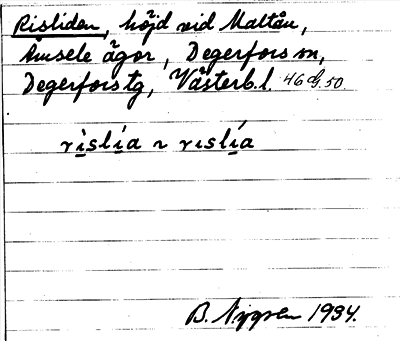 Risliden, höjd vid Maltån,
Amsele ägor, Degerfors sn,
Degerfors tg, Västerb. l. 46 G. 50
rìslía ~ rıslía
B. Nygren 1934.